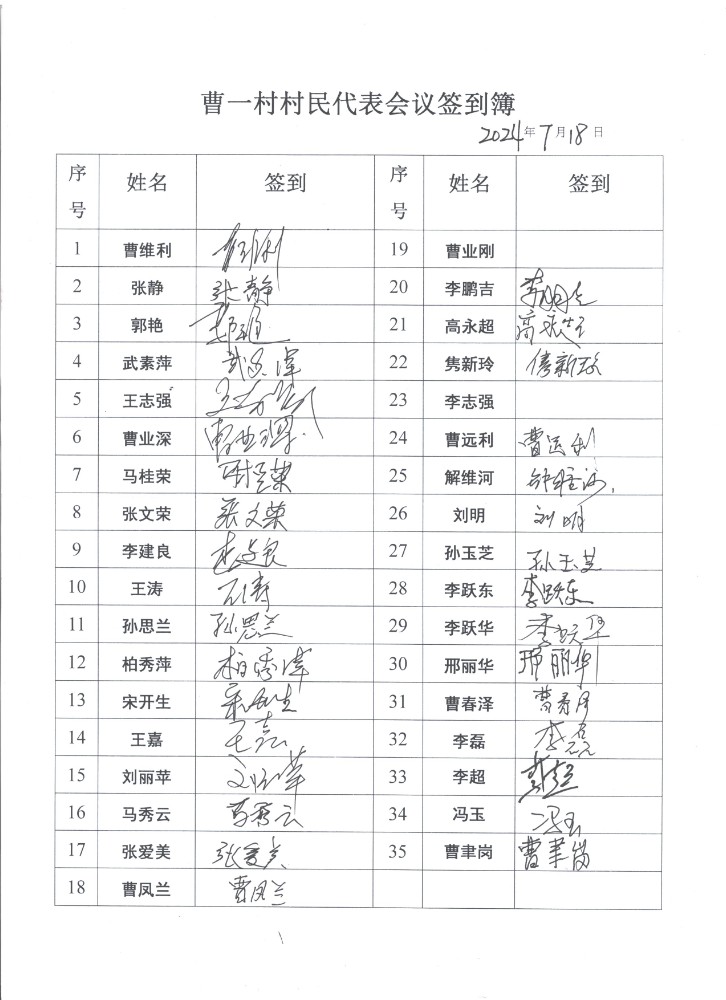 曹一村村民代表会议签到簿
2024年7月18日
序号 姓名 签到 序号 姓名 签到
1 曹维利 19 曹业刚
2 张静 张静 20 李鹏吉
3 郭艳 21 高永超 高永超
4 武素萍 22 隽新玲
5 王志强 23 李志强
6 曹业深 曹业深 24 曹远利 曹远利
7 马桂荣 25 解维河
8 张文荣 张文荣 26 刘明 刘明
9 李建良 27 孙玉芝 孙玉芝
10 王涛 28 李跃东 李跃东
11 孙思兰 孙思兰 29 李跃华
12 柏秀萍 柏秀萍 30 邢丽华 邢丽华
13 宋开生 31 曹春泽
14 王嘉 32 李磊 李磊
15 刘丽苹 33 李超
16 马秀云 马秀云 34 冯玉 冯玉
17 张爱美 张爱美 35 曹聿岗 曹聿岗
18 曹凤兰 曹凤兰